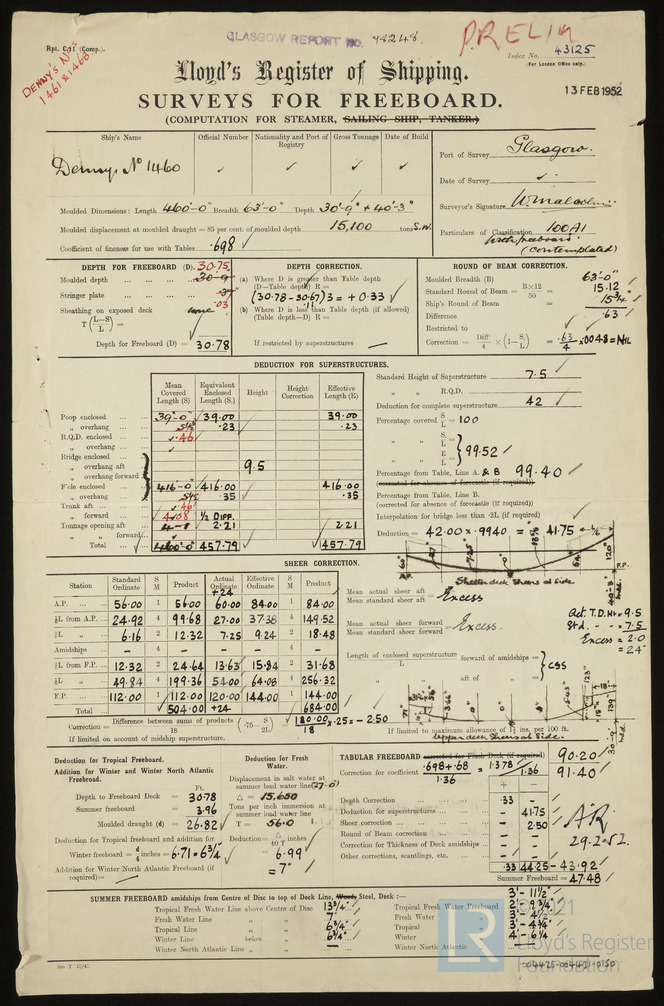 Rpt. C.11 (Comp.).
GLASGOW REPORT No. 78248.
PRELIM
Index No. 43125
(For London Office only.)
DENNY'S Nos
1461 & 1468
Lloyd's Register of Shipping.
13 FEB 1952
SURVEYS FOR FREEBOARD.
(COMPUTATION FOR STEAMER, SAILING SHIP, TANKER.)
Ship's Name
Official Number
Nationality and Port of Registry
Gross Tonnage
Date of Build
Denny. No 1460
Port of Survey Glasgow.
Date of Survey
Surveyor's Signature W. Malcolm
Particulars of Classification 100A1
With freeboard
(contemplated)
Moulded Dimensions: Length 460'-0" Breadth 63'-0" Depth 30'-9" + 40'-3"
Moulded displacement at moulded draught = 85 per cent. of moulded depth 15,100 tons S.W.
Coefficient of fineness for use with Tables .698
DEPTH FOR FREEBOARD (D).
Moulded depth ... 30.75
30-9
Stringer plate ... .03
Sheathing on exposed deck none
T(L–S/L) =
Depth for Freeboard (D) = 30.78
DEPTH CORRECTION.
(a) Where D is greater than Table depth
(D–Table depth) R =
(30.78 - 30.67) 3 = + 0.33
(b) Where D is less than Table depth (if allowed)
(Table depth–D) R =
If restricted by superstructures
ROUND OF BEAM CORRECTION.
Moulded Breadth (B) 63'-0"
Standard Round of Beam = B×12/50 = 15.12
Ship's Round of Beam = 15¾"
Difference .63
Restricted to
Correction = Diff/4 × (1–S₁/L) = .63/4 × .0048 = NIL
DEDUCTION FOR SUPERSTRUCTURES.
Mean Covered Length (S)
Equivalent Enclosed Length (S₁)
Height
Height Correction
Effective Length (E)
Poop enclosed 39'-0" 39.00 39.00
„ overhang 5½" .23 .23
.46
R.Q.D. enclosed
„ overhang
Bridge enclosed
„ overhang aft
„ overhang forward
9.5
F'cle enclosed 416'-0" 416.00 416.00
„ overhang .35 .35
.46
Trunk aft
„ forward 4.08 ½ DIFF.
Tonnage opening aft 4-1 2.21 2.21
„ „ forward
Total 460'-0" 457.79 457.79
Standard Height of Superstructure 7.5
„ „ R.Q.D.
Deduction for complete superstructure 42
Percentage covered S/L = 100
„ „ S₁/L =
„ „ E/L = 99.52
Percentage from Table, Line A. & B 99.40
(corrected for absence of forecastle (if required))
Percentage from Table, Line B.
(corrected for absence of forecastle (if required))
Interpolation for bridge less than ·2L (if required)
Deduction = 42.00 × .9940 = 41.75
A.P.
F.P.
Shelter deck Sheers at side
SHEER CORRECTION.
Station
Standard Ordinate
S M
Product
Actual Ordinate
Effective Ordinate
S M
Product
+24
A.P. 56.00 1 56.00 60.00 84.00 1 84.00
⅙L from A.P. 24.92 4 99.68 27.00 37.38 4 149.52
⅓L „ 6.16 2 12.32 7.25 9.24 2 18.48
Amidships – 4 – – – 4 –
⅓L from F.P. 12.32 2 24.64 13.63 15.84 2 31.68
⅙L „ 49.84 4 199.36 54.00 64.08 4 256.32
F.P. 112.00 1 112.00 120.00 144.00 1 144.00
Total 504.00 +24 684.00
Mean actual sheer aft
Mean standard sheer aft = Excess
Mean actual sheer forward
Mean standard sheer forward = Excess.
Length of enclosed superstructure forward of amidships =
L
„ „ aft of „ =
CSS
Act. T.D. Ht = 9.5
Std. - - = 7.5
Excess = 2.0
= 24"
Correction = Difference between sums of products/18 (·75–S/2L) = 180.00/18 × .25 = - 2.50
If limited on account of midship superstructure.
If limited to maximum allowance of 1½ ins. per 100 ft.
Upper deck Sheers at Side.
Deduction for Tropical Freeboard.
Addition for Winter and Winter North Atlantic Freeboard.
Ft.
Depth to Freeboard Deck = 30.78
Summer freeboard = 3.96
Moulded draught (d) = 26.82
Deduction for Tropical freeboard and addition for
Winter freeboard = d/4 inches = 6.71 = 6¾"
Addition for Winter North Atlantic Freeboard (if required) =
Deduction for Fresh Water.
Displacement in salt water at summer load water line (27'-0)
Δ = 15,650
Tons per inch immersion at summer load water line
T = 56.0
Deduction = Δ/40 T inches
= 6.99
= 7"
TABULAR FREEBOARD corrected for Flush Deck (if required) 90.20
Correction for coefficient .698+.68/1.36 = 1.378/1.36 91.40
+ –
Depth Correction .33 –
Deduction for superstructures – 41.75
Sheer correction – 2.50
Round of Beam correction – –
Correction for Thickness of Deck amidships – –
Other corrections, scantlings, etc. – –
.33 44.25 - 43.92
Summer Freeboard = 47.48
AR
29.2.52.
SUMMER FREEBOARD amidships from Centre of Disc to top of Deck Line, Wood, Steel, Deck :—
3'- 11½"
Tropical Fresh Water Line above Centre of Disc 13¾"
Fresh Water Line „ „ 7"
Tropical Line „ „ 6¾"
Winter Line below „ „ 6¾"
Winter North Atlantic Line „ „
Tropical Fresh Water Freeboard 2'- 9¾"
Fresh Water „ 3'- 4½"
Tropical „ 3'- 4¾"
Winter „ 4'- 6¼"
Winter North Atlantic „
© 2021
LR
Lloyd's Register
Foundation
004425-004431-0150